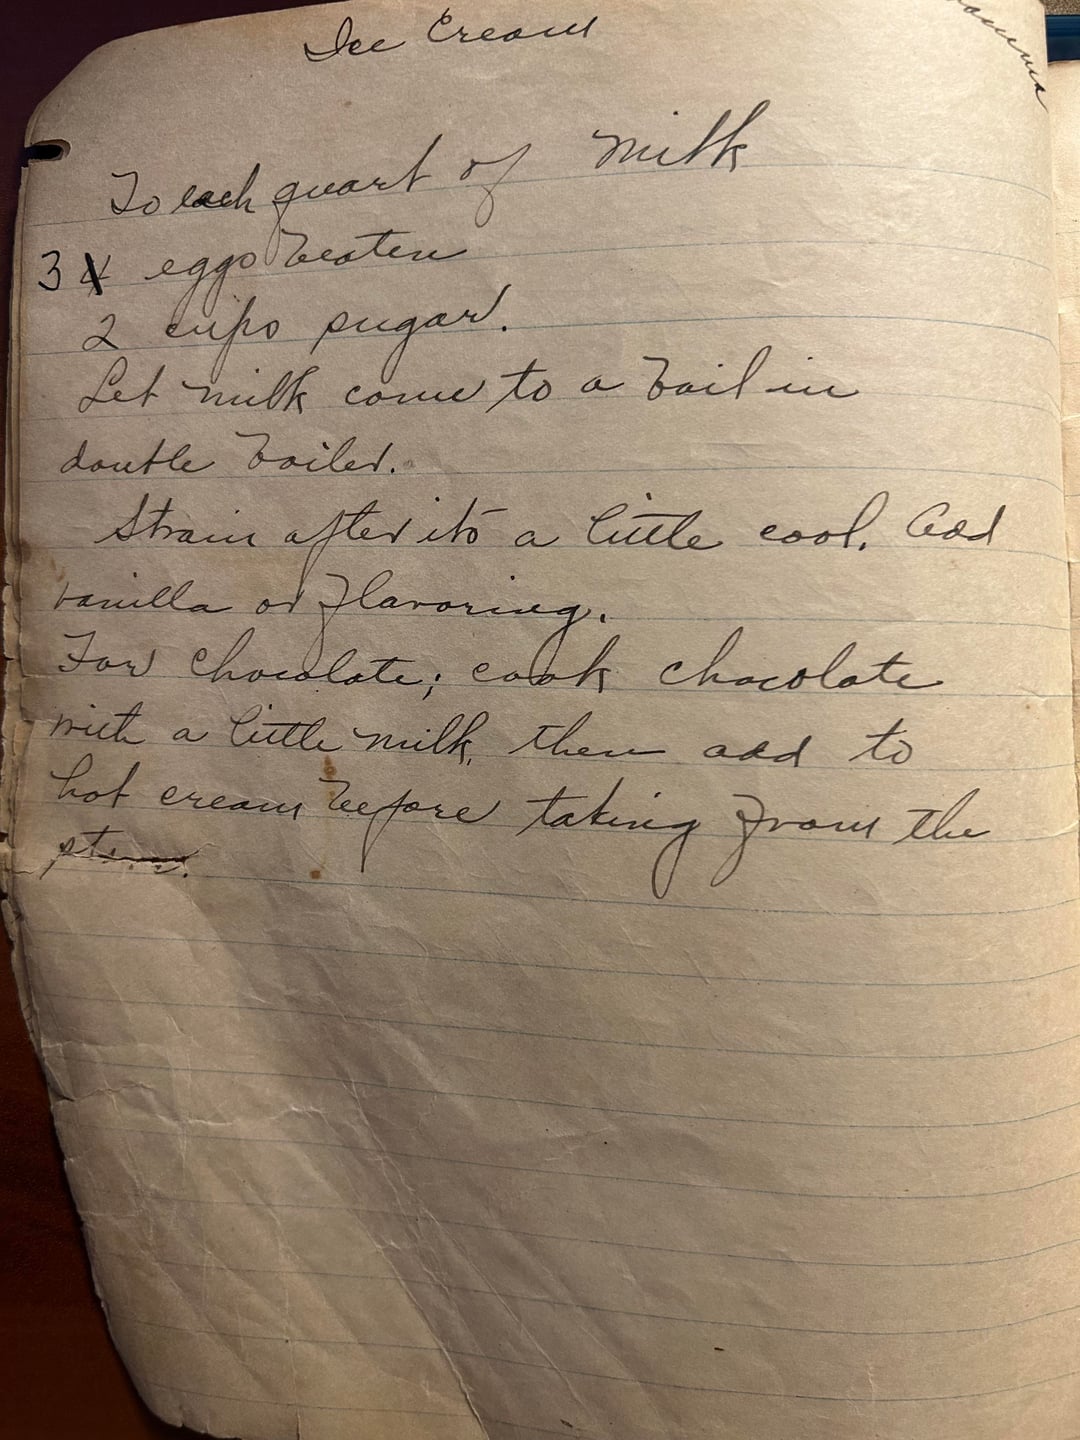 Ice Cream
To each quart of milk
3 4 eggs beaten
2 cups sugar.
Let milk come to a boil in
double boiler.
Strain after its a little cool. Add
vanilla or flavoring.
For chocolate; cook chocolate
with a little milk, then add to
hot cream before taking from the